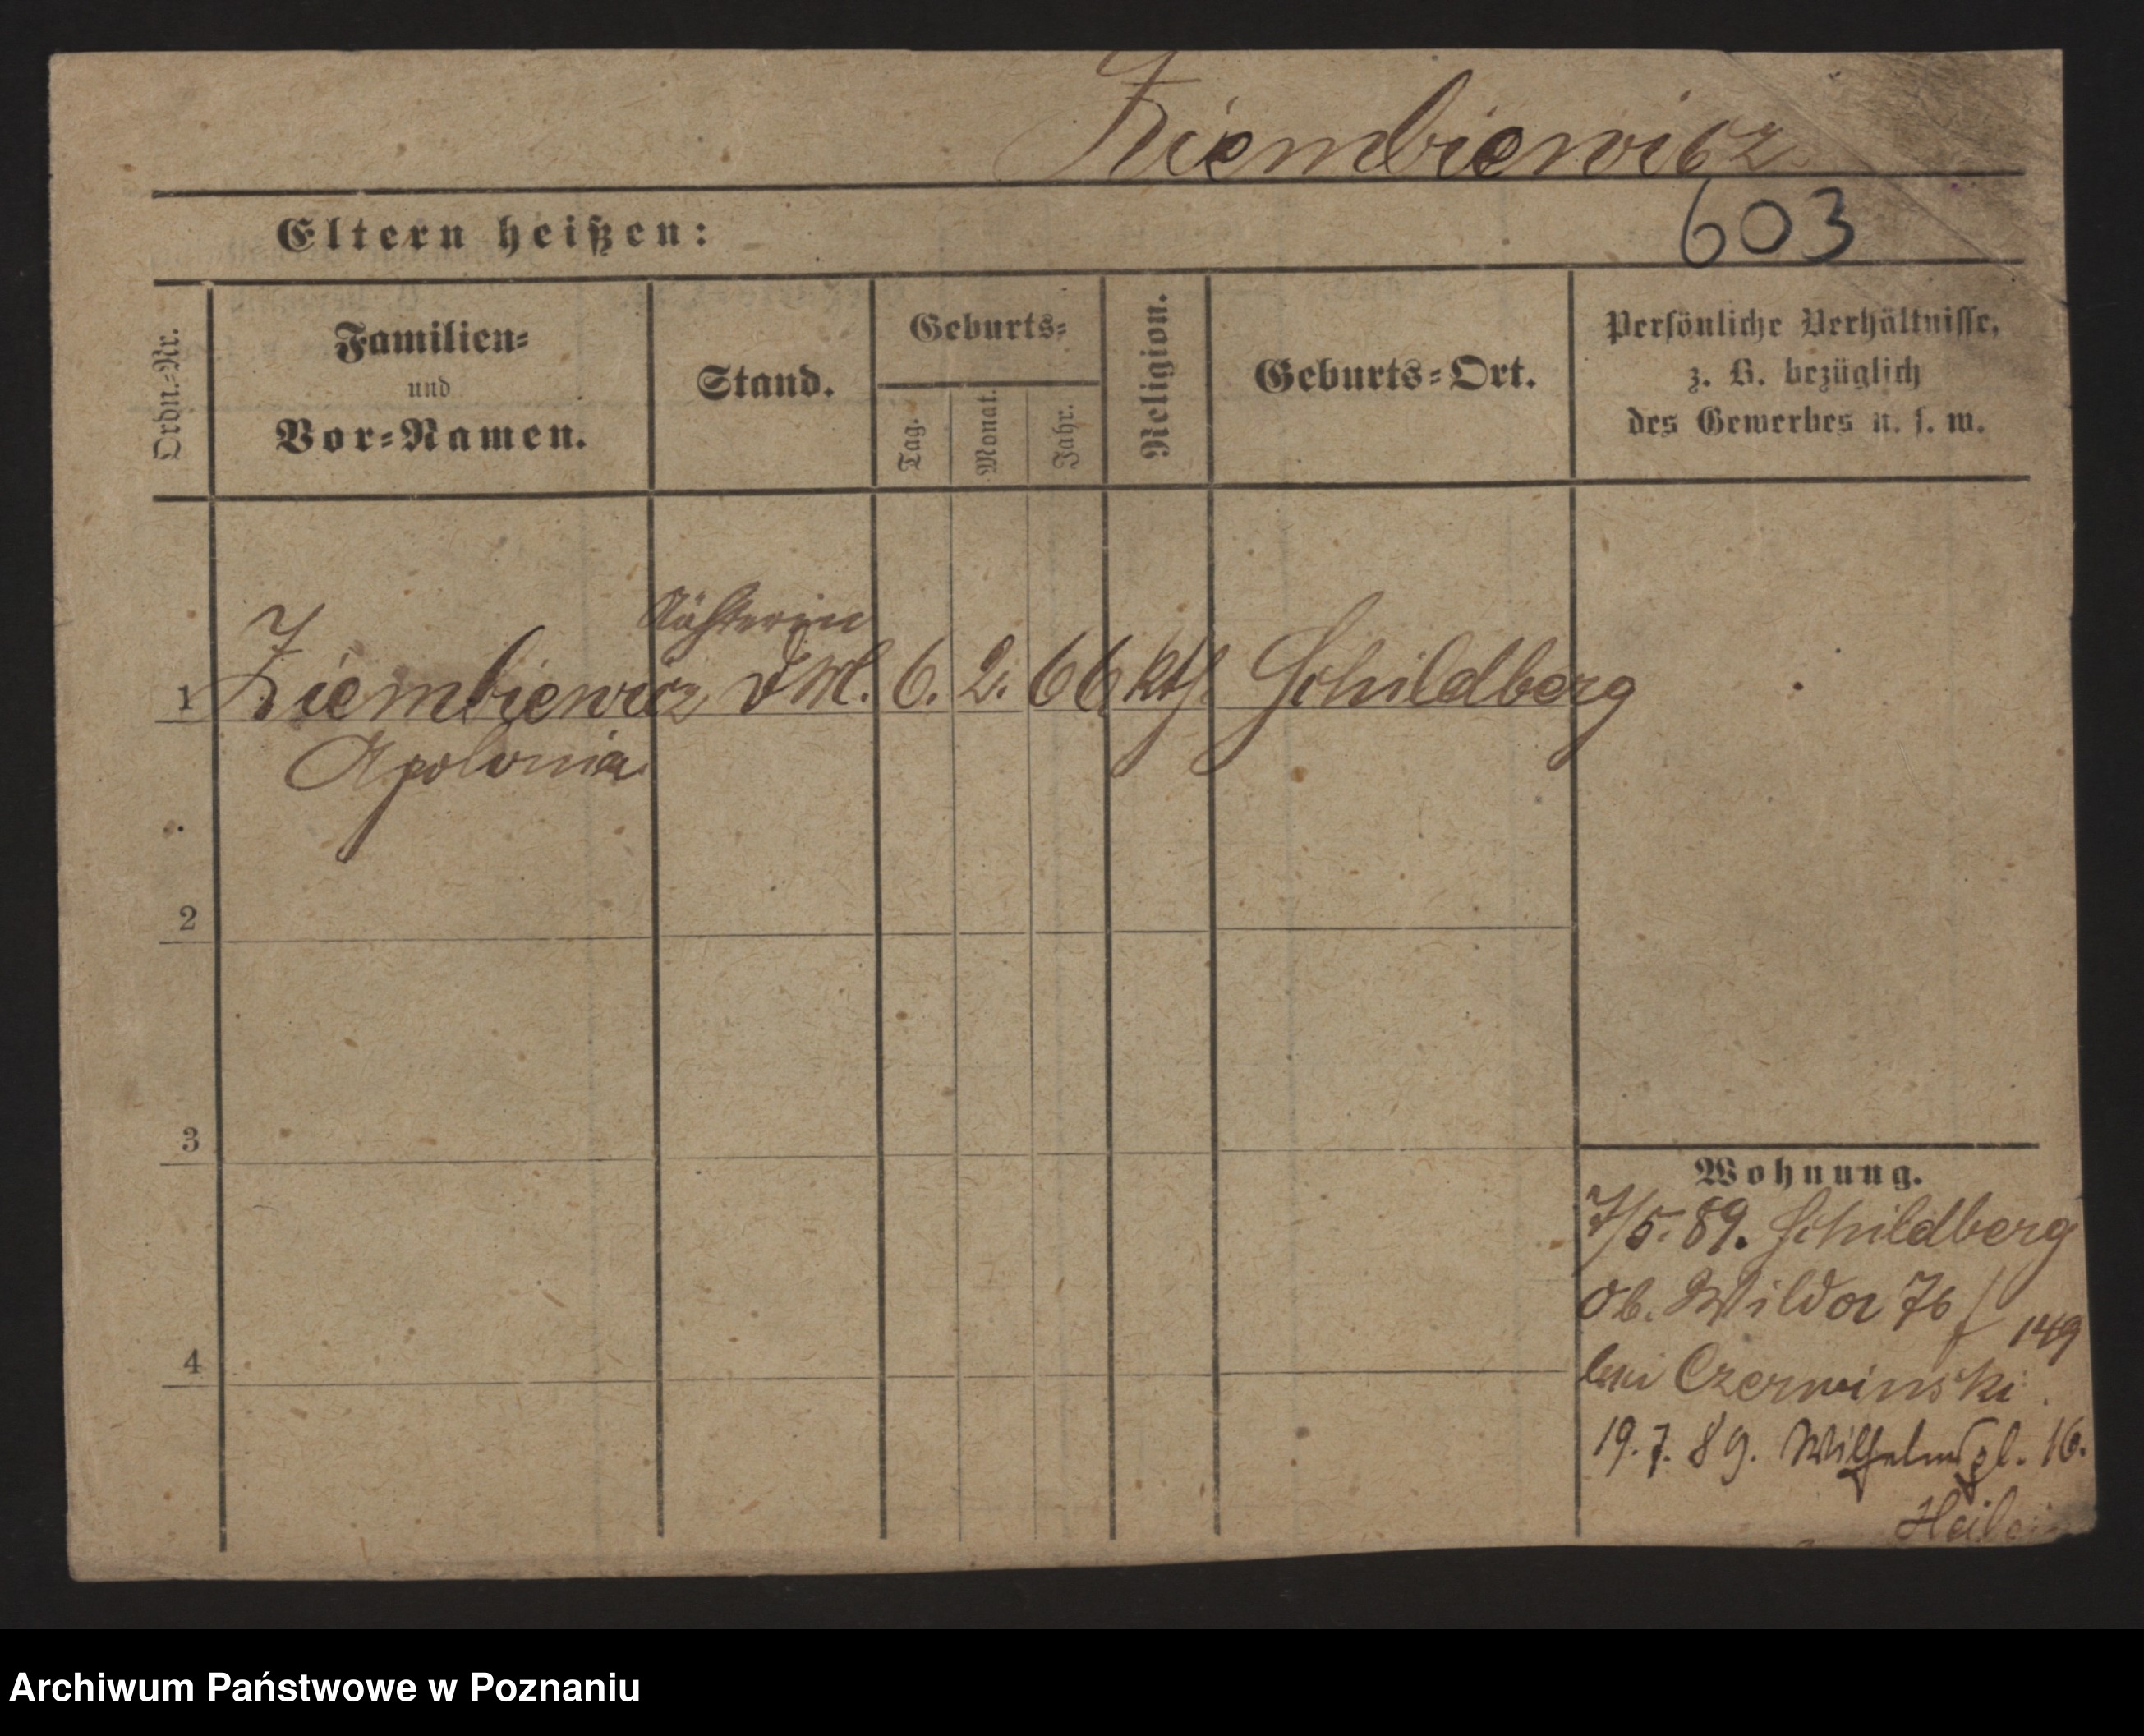 Ziembiewicz
603
Eltern heißen:
Ordn.-Nr.
Familien-
und
Vor-Namen.
Stand.
Geburts-
Tag.
Monat.
Jahr.
Religion.
Geburts-Ort.
Persönliche Verhältnisse,
z. B. bezüglich
des Gewerbes u. s. w.
Nähterin
1 Ziembiewicz 6. 2. 66. kth. Schildberg
Apolonia
2
3
4
Wohnung.
7/5. 89. Schildberg
Ob. Wilda 76 / 149
bei Czerwinski
19. 7. 89. Wilhelmspl. 16.
Archiwum Państwowe w Poznaniu